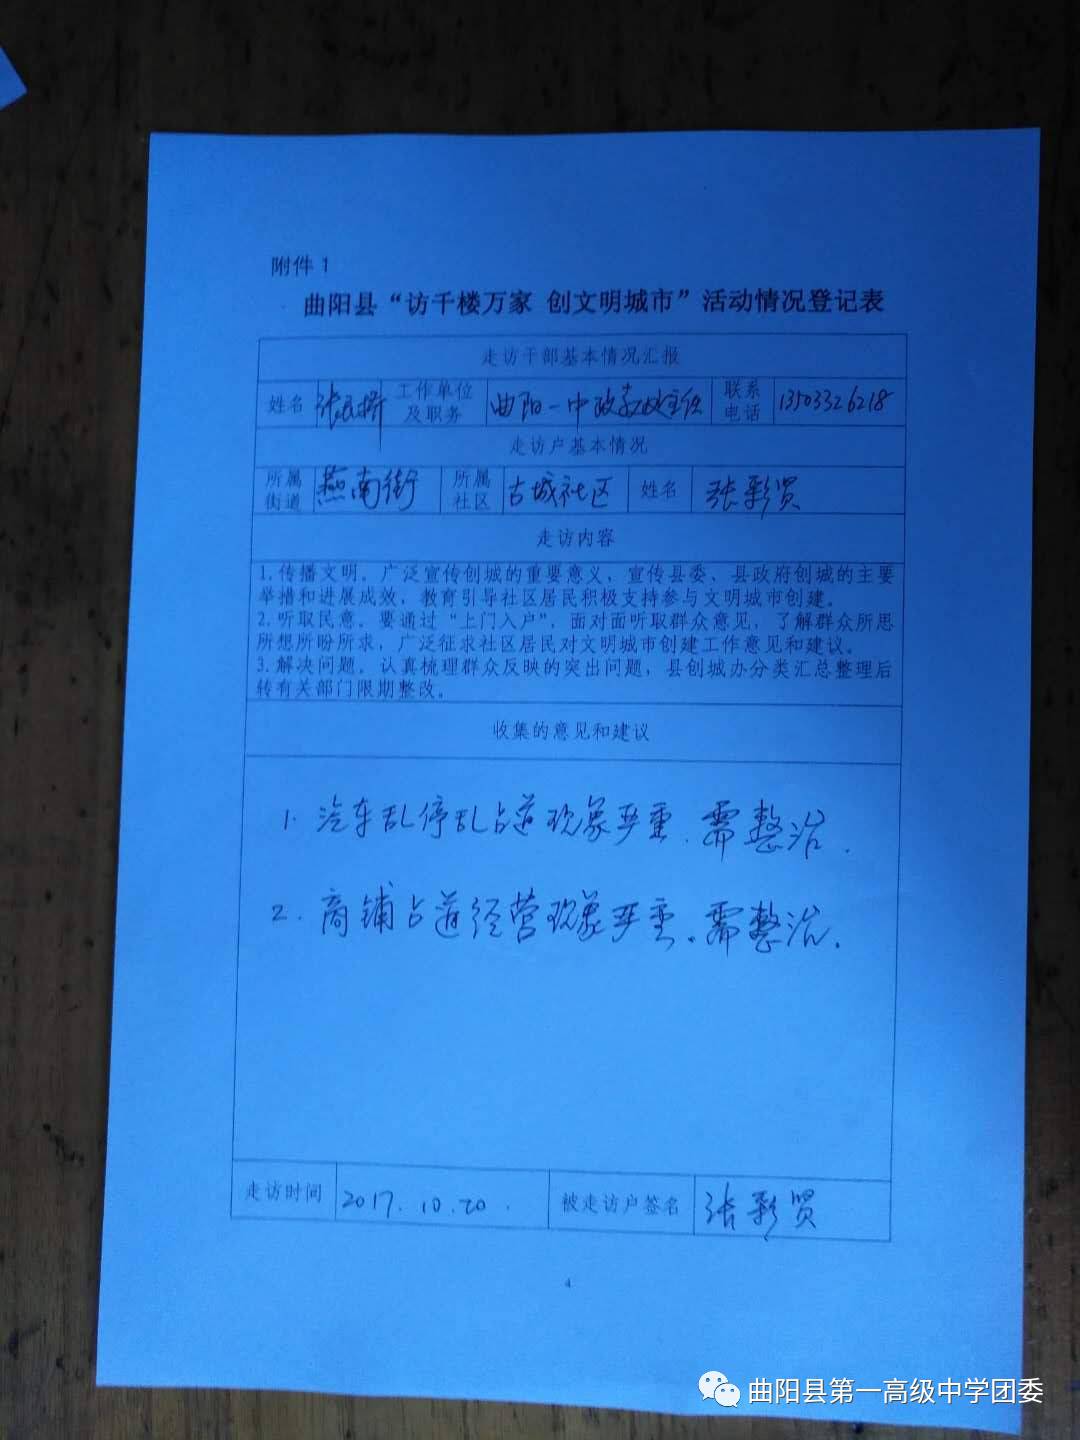 附件1
曲阳县“访千楼万家 创文明城市”活动情况登记表
走访干部基本情况汇报
姓名 张 桥 工作单位及职务 曲阳一中政教处主任 联系电话 13503326218
走访户基本情况
所属街道 燕南街 所属社区 古城社区 姓名 张彩贤
走访内容
1.传播文明。广泛宣传创城的重要意义，宣传县委、县政府创城的主要
举措和进展成效，教育引导社区居民积极支持参与文明城市创建。
2.听取民意。要通过“上门入户”，面对面听取群众意见，了解群众所思
所想所盼所求，广泛征求社区居民对文明城市创建工作意见和建议。
3.解决问题。认真梳理群众反映的突出问题，县创城办分类汇总整理后
转有关部门限期整改。
收集的意见和建议
1.汽车乱停乱占道现象严重.需整治.
2.商铺占道经营现象严重。需整治.
走访时间 2017.10.20. 被走访户签名 张彩贤
4
曲阳县第一高级中学团委